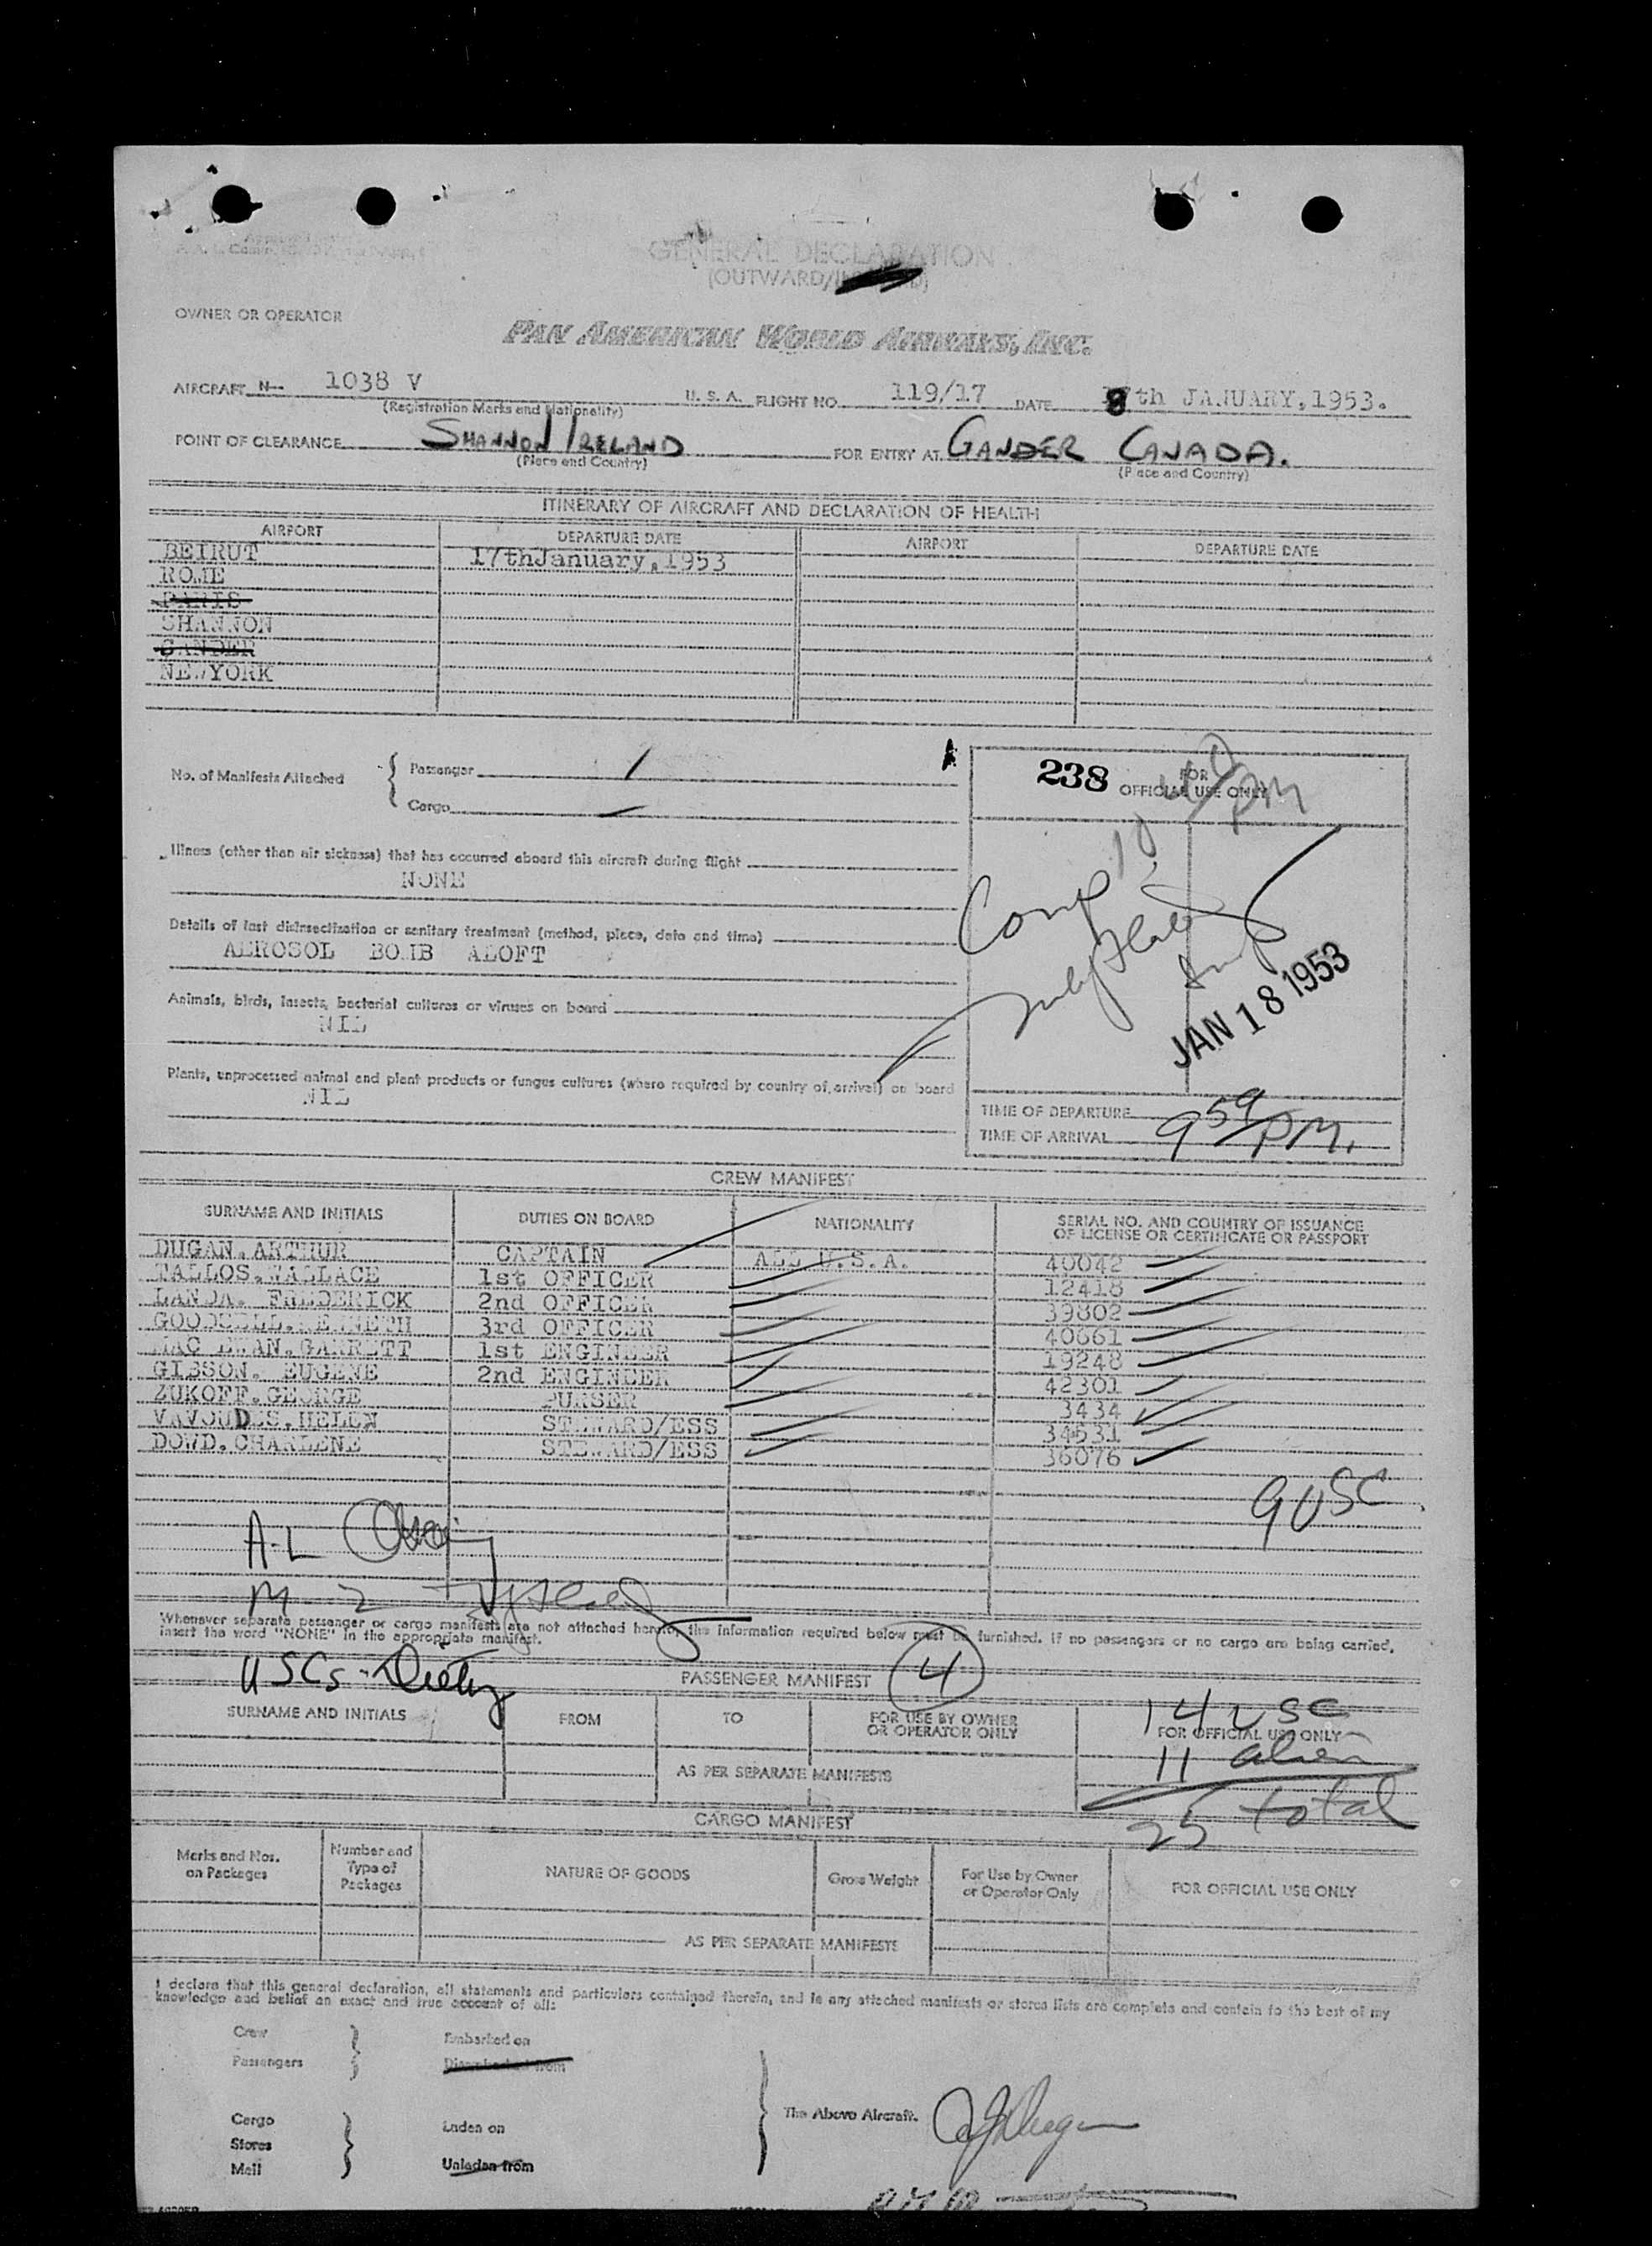 GENERAL DECLARATION
(OUTWARD/
OWNER OR OPERATOR
PAN AMERICAN WORLD AIRWAYS, INC.
AIRCRAFT N- 1038 V U. S. A. FLIGHT NO. 119/17 DATE 8th JANUARY,1953.
(Registration Marks and Nationality)
POINT OF CLEARANCE SHANNON IRELAND FOR ENTRY AT GANDER CANADA.
(Place and Country) (Place and Country)
ITINERARY OF AIRCRAFT AND DECLARATION OF HEALTH
AIRPORT DEPARTURE DATE AIRPORT DEPARTURE DATE
BEIRUT 17thJanuary,1953
ROME
PARIS
SHANNON
GANDER
NEWYORK
No. of Manifests Attached { Passenger 1
Cargo —
238 FOR
OFFICIAL USE ONLY
PM
Comp
JAN 18 1953
Illness (other than air sickness) that has occurred aboard this aircraft during flight
NONE
Details of last disinsectization or sanitary treatment (method, place, date and time)
AEROSOL BOMB ALOFT
Animals, birds, insects, bacterial cultures or viruses on board
NIL
Plants, unprocessed animal and plant products or fungus cultures (where required by country of arrival) on board
NIL
TIME OF DEPARTURE
TIME OF ARRIVAL 9 59 PM.
CREW MANIFEST
SURNAME AND INITIALS DUTIES ON BOARD NATIONALITY SERIAL NO. AND COUNTRY OF ISSUANCE
OF LICENSE OR CERTIFICATE OR PASSPORT
DUGAN. ARTHUR CAPTAIN ALL U.S.A. 40042
TALLOS.WALLACE 1st OFFICER 12418
LANDA. FREDERICK 2nd OFFICER 39802
KENNETH 3rd OFFICER 40661
MAC EWAN.GARRETT 1st ENGINEER 19248
GIBSON. EUGENE 2nd ENGINEER 42301
ZUKOFF.GEORGE PURSER 3434
HELEN STEWARD/ESS 34531
DOWD.CHARLENE STEWARD/ESS 36076
9 USC
A-L
M-2
Whenever separate passenger or cargo manifests are not attached hereto, the information required below must be furnished. If no passengers or no cargo are being carried,
insert the word "NONE" in the appropriate manifest.
USCs -
PASSENGER MANIFEST 4
SURNAME AND INITIALS FROM TO FOR USE BY OWNER
OR OPERATOR ONLY FOR OFFICIAL USE ONLY
14 USC
11 alien
25 total
AS PER SEPARATE MANIFESTS
CARGO MANIFEST
Marks and Nos.
on Packages Number and
Type of
Packages NATURE OF GOODS Gross Weight For Use by Owner
or Operator Only FOR OFFICIAL USE ONLY
AS PER SEPARATE MANIFESTS
I declare that this general declaration, all statements and particulars contained therein, and in any attached manifests or stores lists are complete and contain to the best of my
knowledge and belief an exact and true account of all:
Crew Embarked on
Passengers Disembarked from
The Above Aircraft.
Cargo Laden on
Stores
Mail Unladen from